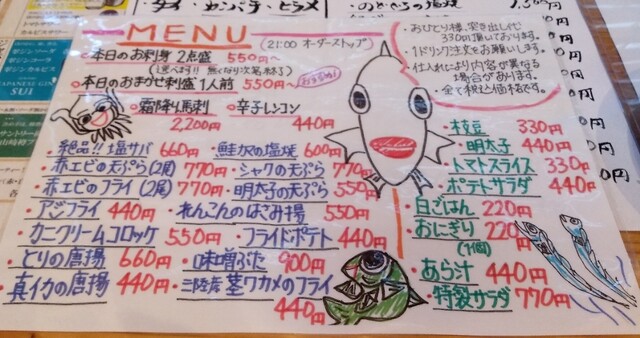 MENU
(21:00 オーダーストップ)
・本日のお刺身 2点盛 550円~
(選べます!! 無くなり次第終了)
・本日のおまかせ刺盛 1人前 550円~
おすすめ!
・霜降り馬刺 2,200円
・辛子レンコン 440円
・おひとり様、突き出し代
330円頂いております。
・1ドリンク注文をお願いします。
・仕入れにより内容が異なる
場合があります。
・全て税込価格です。
・絶品!!塩サバ 660円
・鮭カマの塩焼 600円
・赤エビの天ぷら(2尾) 770円
・シャクの天ぷら 770円
・赤エビのフライ(2尾) 770円
・明太子の天ぷら 550円
・アジフライ 440円
・れんこんのはさみ揚 550円
・カニクリームコロッケ 550円
・フライドポテト 440円
・とりの唐揚 660円
・味噌ぶた 900円
・真イカの唐揚 440円
・三陸産 茎ワカメのフライ
440円
・枝豆 330円
・明太子 440円
・トマトスライス 330円
・ポテトサラダ 440円
・白ごはん 220円
・おにぎり 220円
(1個)
・あら汁 440円
・特製サラダ 770円
JAPANESE GIN
SUI